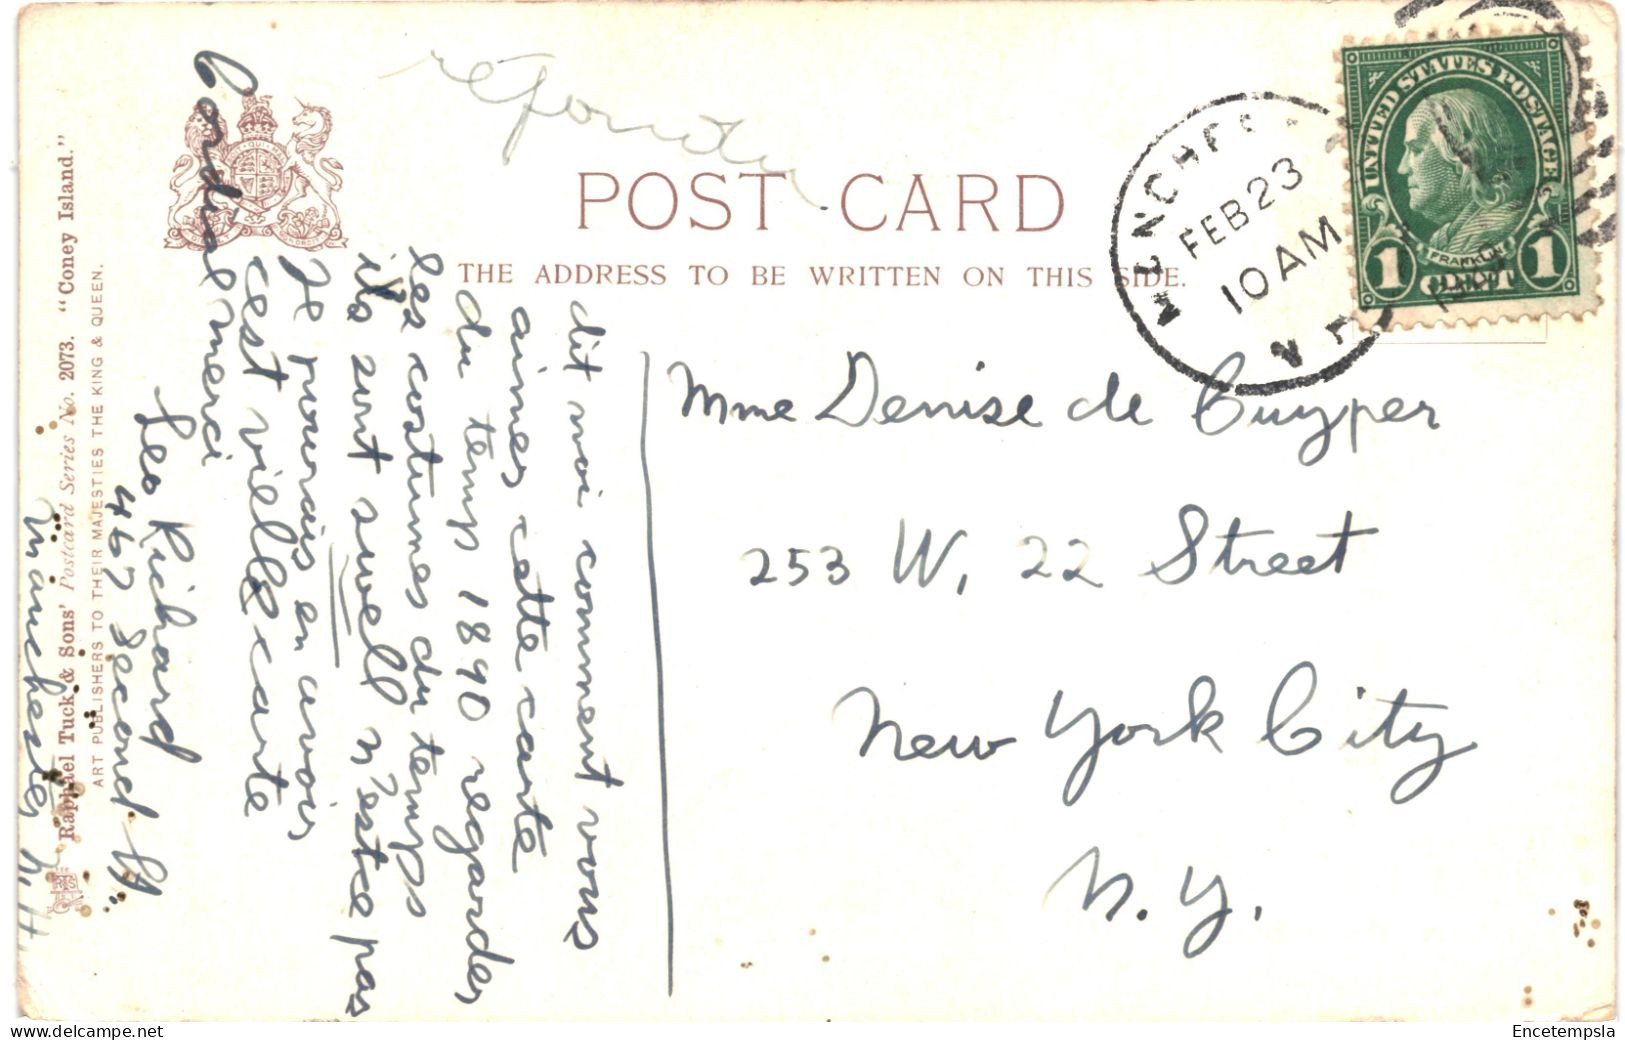 POST CARD
THE ADDRESS TO BE WRITTEN ON THIS SIDE.
UNITED STATES POSTAGE
FRANKLIN
1 CENT 1
MANCHES
FEB 23
10 AM
N.H.
Mme Denise de Cuyper
253 W. 22 Street
New York City
N.Y.
dit moi comment vous
aimes cette carte
du temp 1890 regardes
les costumes du temps
ils sont swell n'estce pas
Je pourais en avoir
cest vielle carte
Cordial merci
Leo Richard
467 Second St.
Manchester N.H.
Raphael Tuck & Sons' Postcard Series No. 2073. "Coney Island."
ART PUBLISHERS TO THEIR MAJESTIES THE KING & QUEEN.
Encetempsla